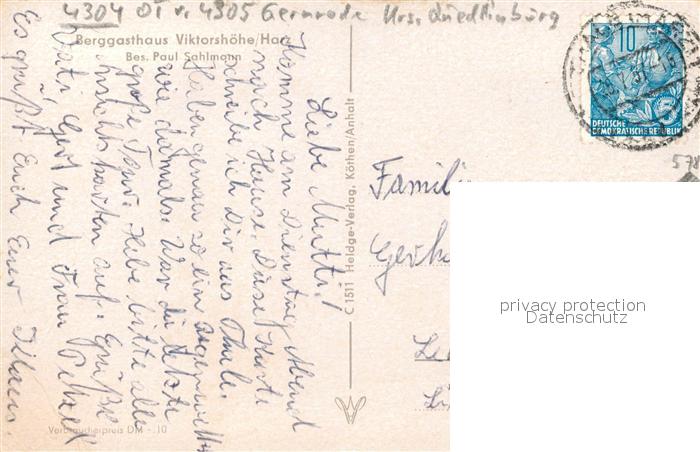 4304 OT v. 4305 Gernrode Krs. Quedlinburg
Berggasthaus Viktorshöhe/Harz
Bes. Paul Sahlmann
10
DEUTSCHE
DEMOKRATISCHE REPUBLIK
578
Liebe Mutti!
Komme am Dienstag Abend
nach Hause. Diese Karte
schreibe ich Dir aus Thale.
Haben genau so ein Regenwetter
wie damals. War die letzte
große Tour. Hebe bitte alle
Ansichtskarten auf. Grüße
Vati, Gert und Frau
Es grüßt Euch Euer
C 1511 Heldge-Verlag, Köthen/Anhalt
Familie
Verbraucherpreis DM -.10
privacy protection
Datenschutz